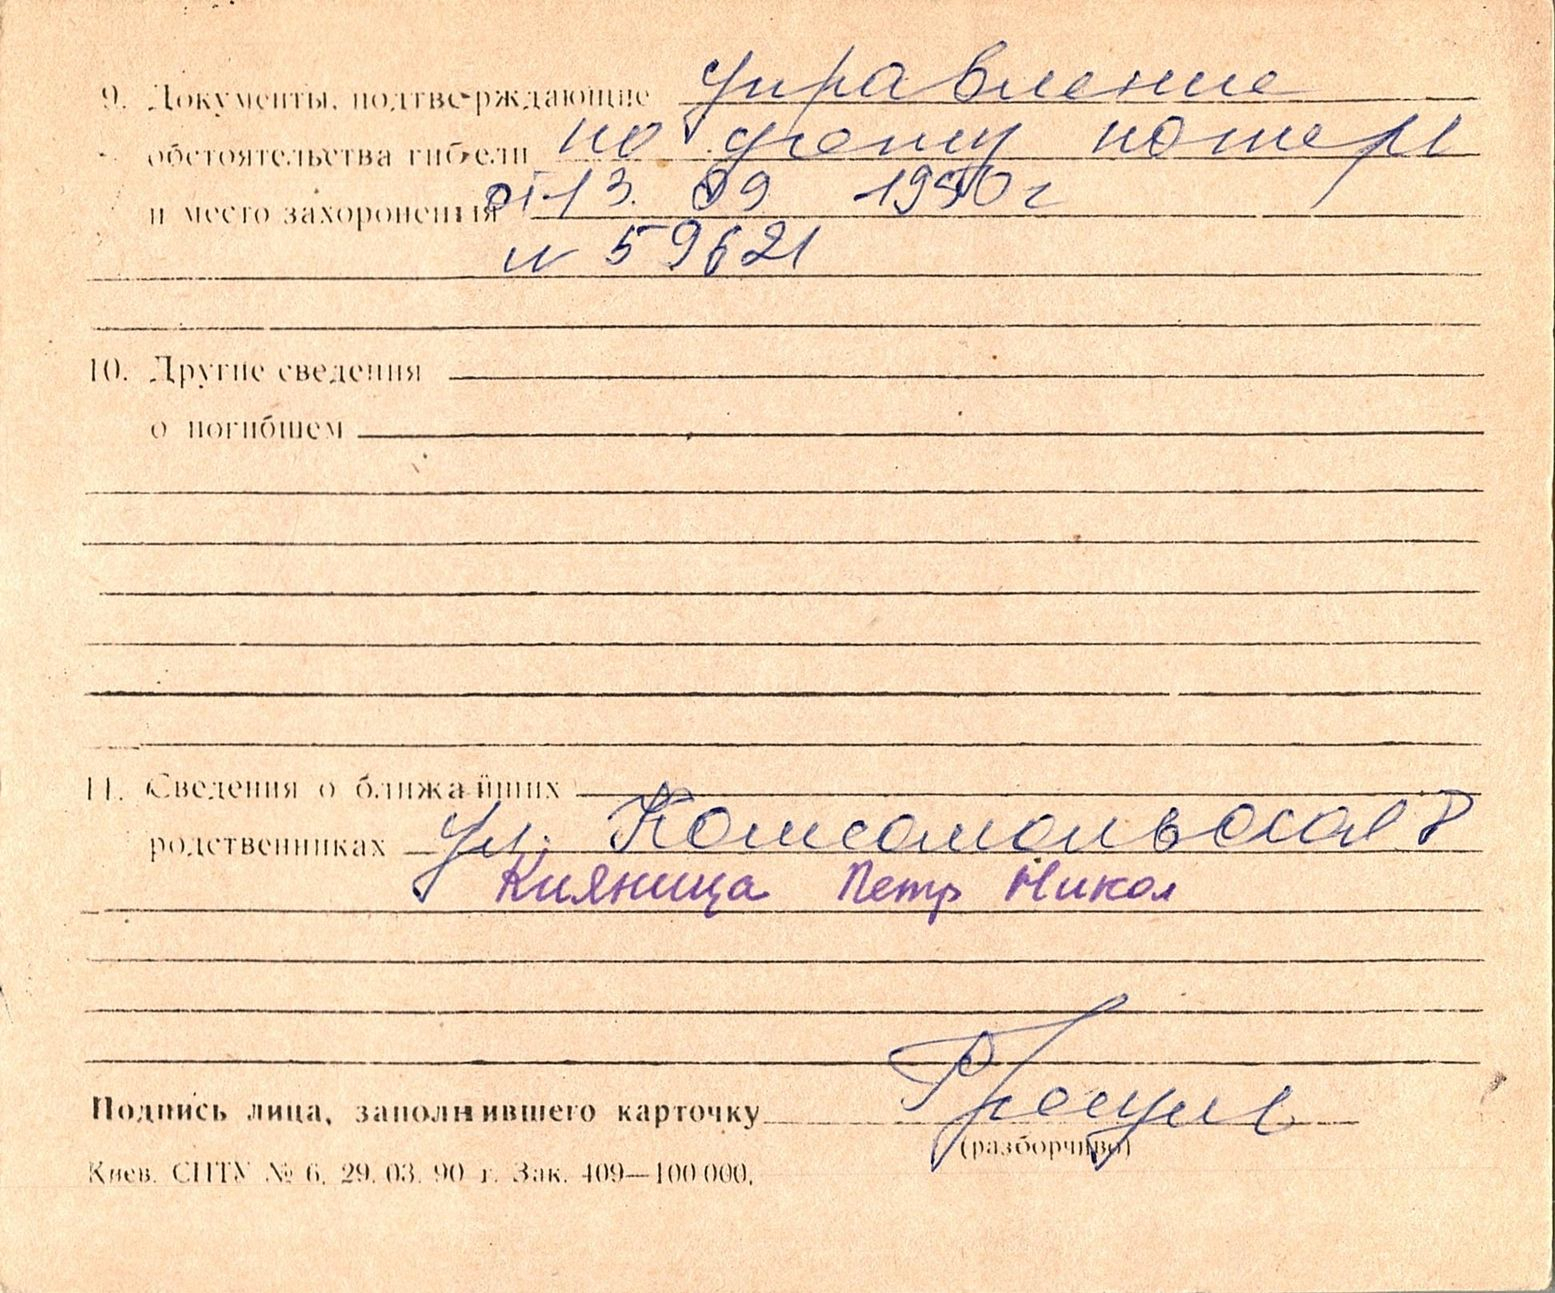 9. Документы, подтверждающие управление
обстоятельства гибели по учету потерь
и место захоронения от 13. 09 1990 г
N 59621
10. Другие сведения
о погибшем
11. Сведения о ближайших
родственниках ул. Комсомольская 8
Кияница Петр Никол
Подпись лица, заполнившего карточку
(разборчиво)
Киев. СПТУ № 6. 29. 03. 90 г. Зак. 409—100 000.